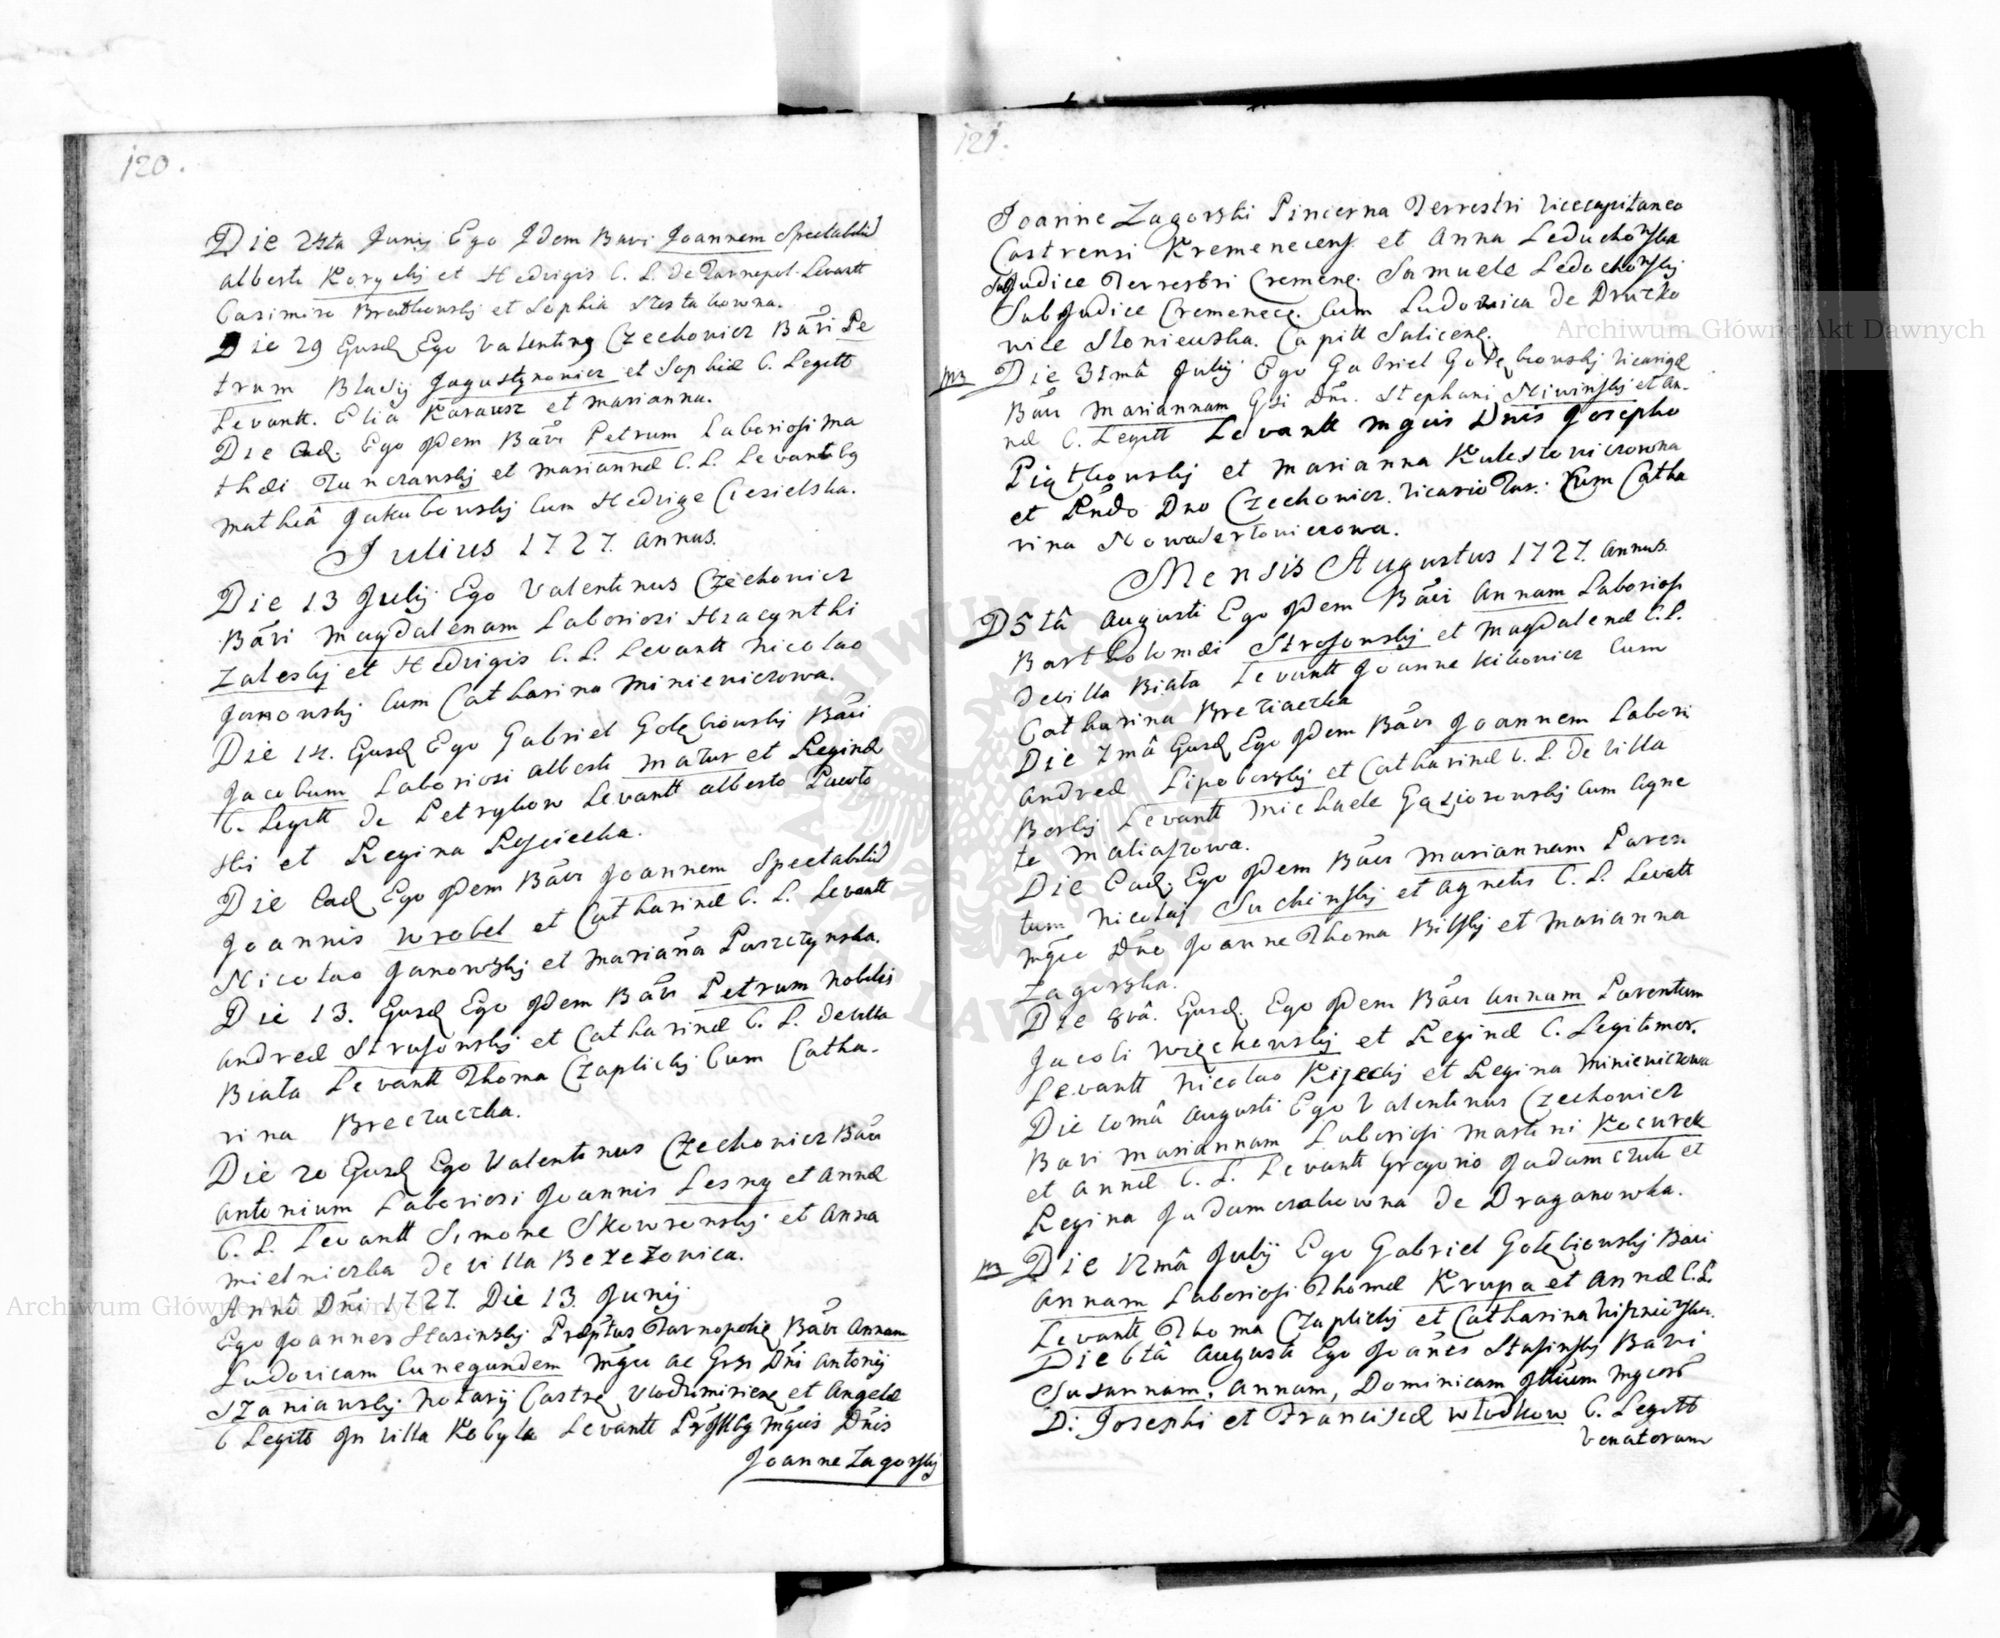 120.
Die 24ta Junij Ego Idem Bavi Joannem Spectabiliũ
Alberti Korycky et Hedvigis C. L. de Tarnopol Levantt
Casimiro Bratkowsky et Sophia
Die 29 Ejusd Ego Valentinq Czechowicz Bãvi Pe
trum Blasij Jagustynowicz et Sophiæ C. Legitt
Levantt. Eliâ Karausz et Marianna.
Die Ead. Ego Idem Bãvi Petrum Laboriosi Ma
thæi et Mariannæ C. L. Levantibq
Mathiâ Jakubowsky Cum Hedvige Ciesielska.
Julius 1727. Annus.
Die 13 Julij Ego Valentinus Czechowicz
Bãvi Magdalenam Laboriosi Hiacynthi
Zalesky et Hedvigis C. L. Levantt Nicolao
Janowsky Cum Catharina Minieviczowa.
Die 14. Ejusd Ego Gabriel Gołębiowsky Bãvi
Jacobum Laboriosi Alberti Mazur et Reginæ
C. Legitt de Petrykow Levantt Alberto
ski et Regina
Die Ead Ego Idem Bãvi Joannem Spectabiliũ
Joannis Wrobel et Catharinæ C. L. Levantt
Nicolao Janowsky et Mariãna Paszczynska.
Die 13. Ejusd Ego Idem Bãvi Petrum Nobilis
Andreæ Strusowsky et Catharinæ C. L. de villa
Biała Levantt Thoma Czaplicky Cum Catha-
rina Brecziaczka.
Die 20 Ejusd Ego Valentinus Czechowicz Bãvi
Antonium Laboriosi Joannis Lesny et Annæ
C. L. Levantt Simone Skowronsky et Anna
Mielniczka de villa Bezezowica.
Annô Dñi 1727. Die 13. Junij
Ego Joannes Stasinsky Præptus Tarnopolię Bãvi Annam
Ludovicam Cunegundem Mgci ac Grsi Dñi Antonij
Szaniawsky Notarij Castrę Vlodimirienę et Angelæ
C Legitt In villa Kobyla Levantt Mgcis Dñis
Joanne Zagorsky
121.
Joanne Zagorski Pincerna Terrestri Vicecapitaneo
Castrensi Kremenecens et Anna Leduchowska
Judice Terrestri Cremene. Samuele Ledochowsky
SubJudice Cremenece. Cum Ludowica de Druzko
wice Stoniewska. Capitt Salicene.
Die 31mâ Julij Ego Gabriel Gołębiowsky Vicarigæ
Bãvi Mariannam Gsi Dñi. Stephani Niwinsky et An-
næ C. Legitt Levantt Mgcis Dnis Josepho
Piątkowsky et Marianna Kulestowiczowna
et Rñdo Dno Czechowicz. Vicario Tar: Cum Catha
rina Nowosertowiczowa.
Mensis Augustus 1727. Annus.
D 5tâ Augusti Ego Idem Bãvi Annam Laboriosi
Bartholomæi Strusowsky et Magdalenæ C. L.
de villa Biała Levantt Joanne Kikowicz Cum
Catharina Brecziaczka
Die 7mâ Ejusd Ego Idem Bãvi Joannem Labori
Andreæ et Catharinæ C. L. de villa
Borky Levantt Michaele Gąsiorowsky Cum Agne
te Matiaszowa.
Die Ead. Ego Idem Bãvi Mariannam Paren
tum Nicolaj Suchinsky et Agnetis C. L. Levantt
Mgco Dño Joanne Thoma Bilsky et Marianna
Zagorska.
Die 8vâ. Ejusd. Ego Idem Bãvi Annam Parentum
Jacobi Więckowsky et Reginæ C. Legitimor.
Levantt Nicolao Kijecky et Regina Minieviczowa
Die 10mâ Augusti Ego Valentinus Czechowicz
Bavi Mariannam Laboriosi Martini Kocurek
et Annæ C. L. Levantt Gregorio Jadamczuk et
Regina Jadamczakowna de Draganowka.
Die 12mâ Julij Ego Gabriel Gołębiowsky Bãvi
Annam Laboriosi Thomæ Krupa et Annæ C. L.
Levantt Thoma Czaplicky et Catharina
Die 6tâ Augusti Ego Joanes Stasinsky Bavi
Susannam, Annam, Dominicam Filiam Mgcorũ
D: Josephi et Franciscæ Włodkow C. Legitt
Venatorum
Archiwum Główne Akt Dawnych
Archiwum Główne Akt Dawnych